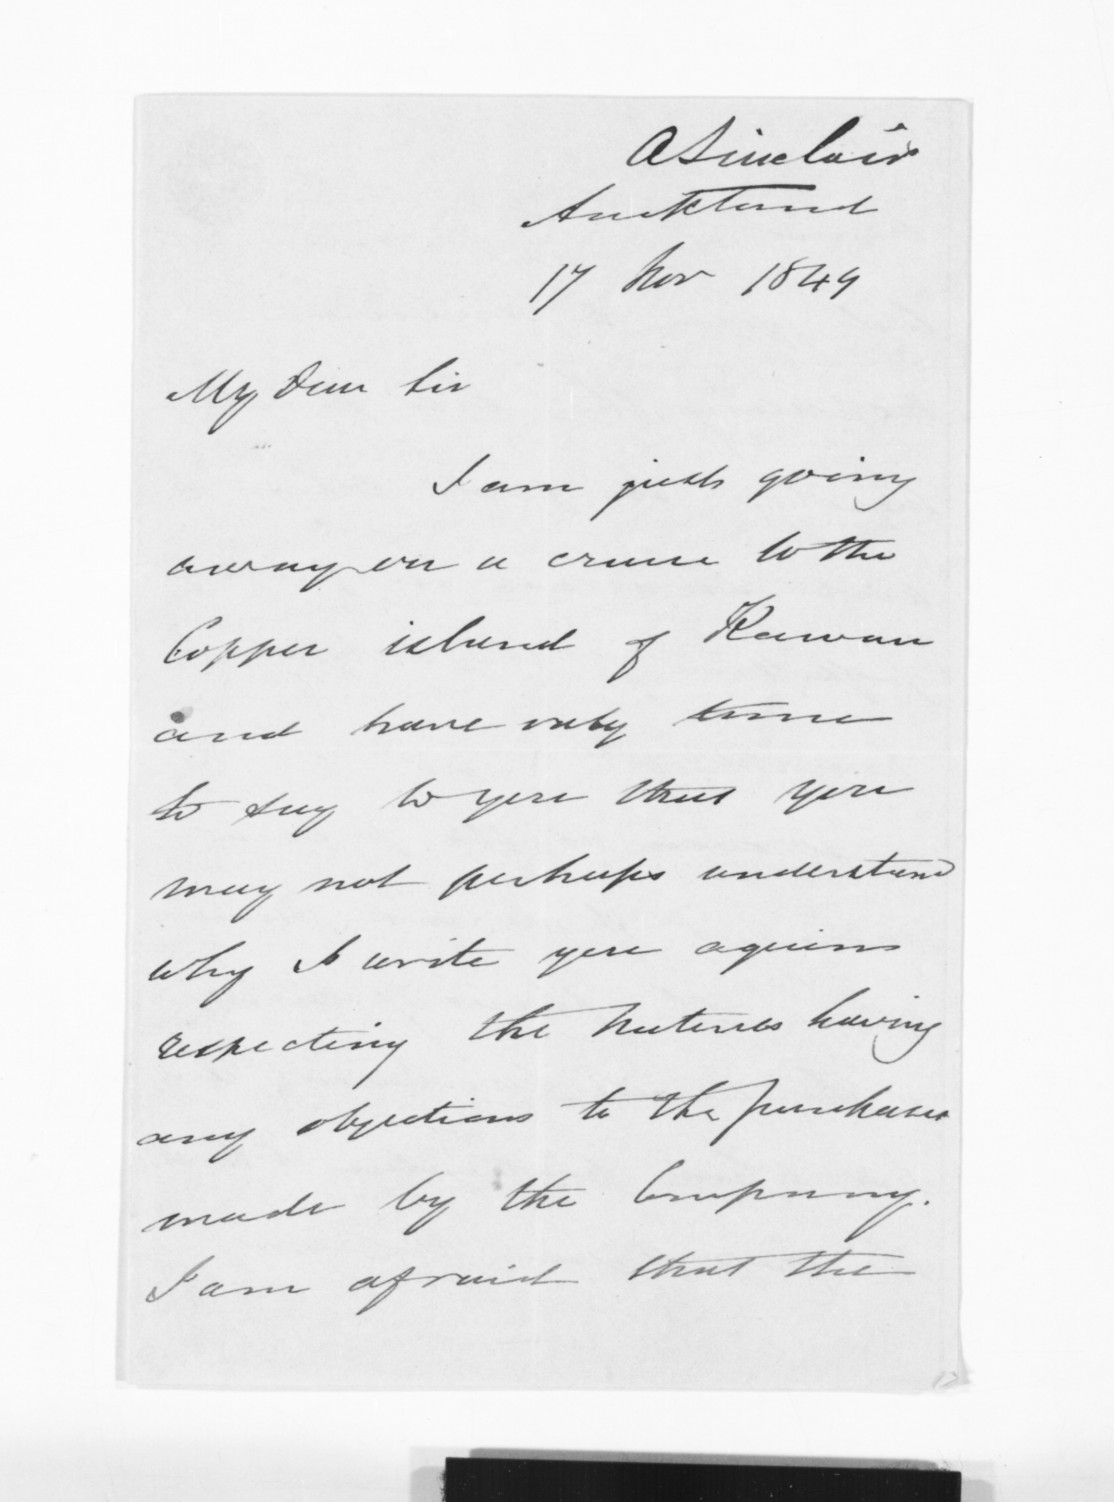 A Sinclair
Auckland
17 Nov 1849
My Dear Sir
I am just going
away on a cruise to the
Copper island of Kawau
and have only time
to say to you that you
may not perhaps understand
why I write you again
respecting the Natives having
any objections to the purchases
made by the Company.
I am afraid that the
12